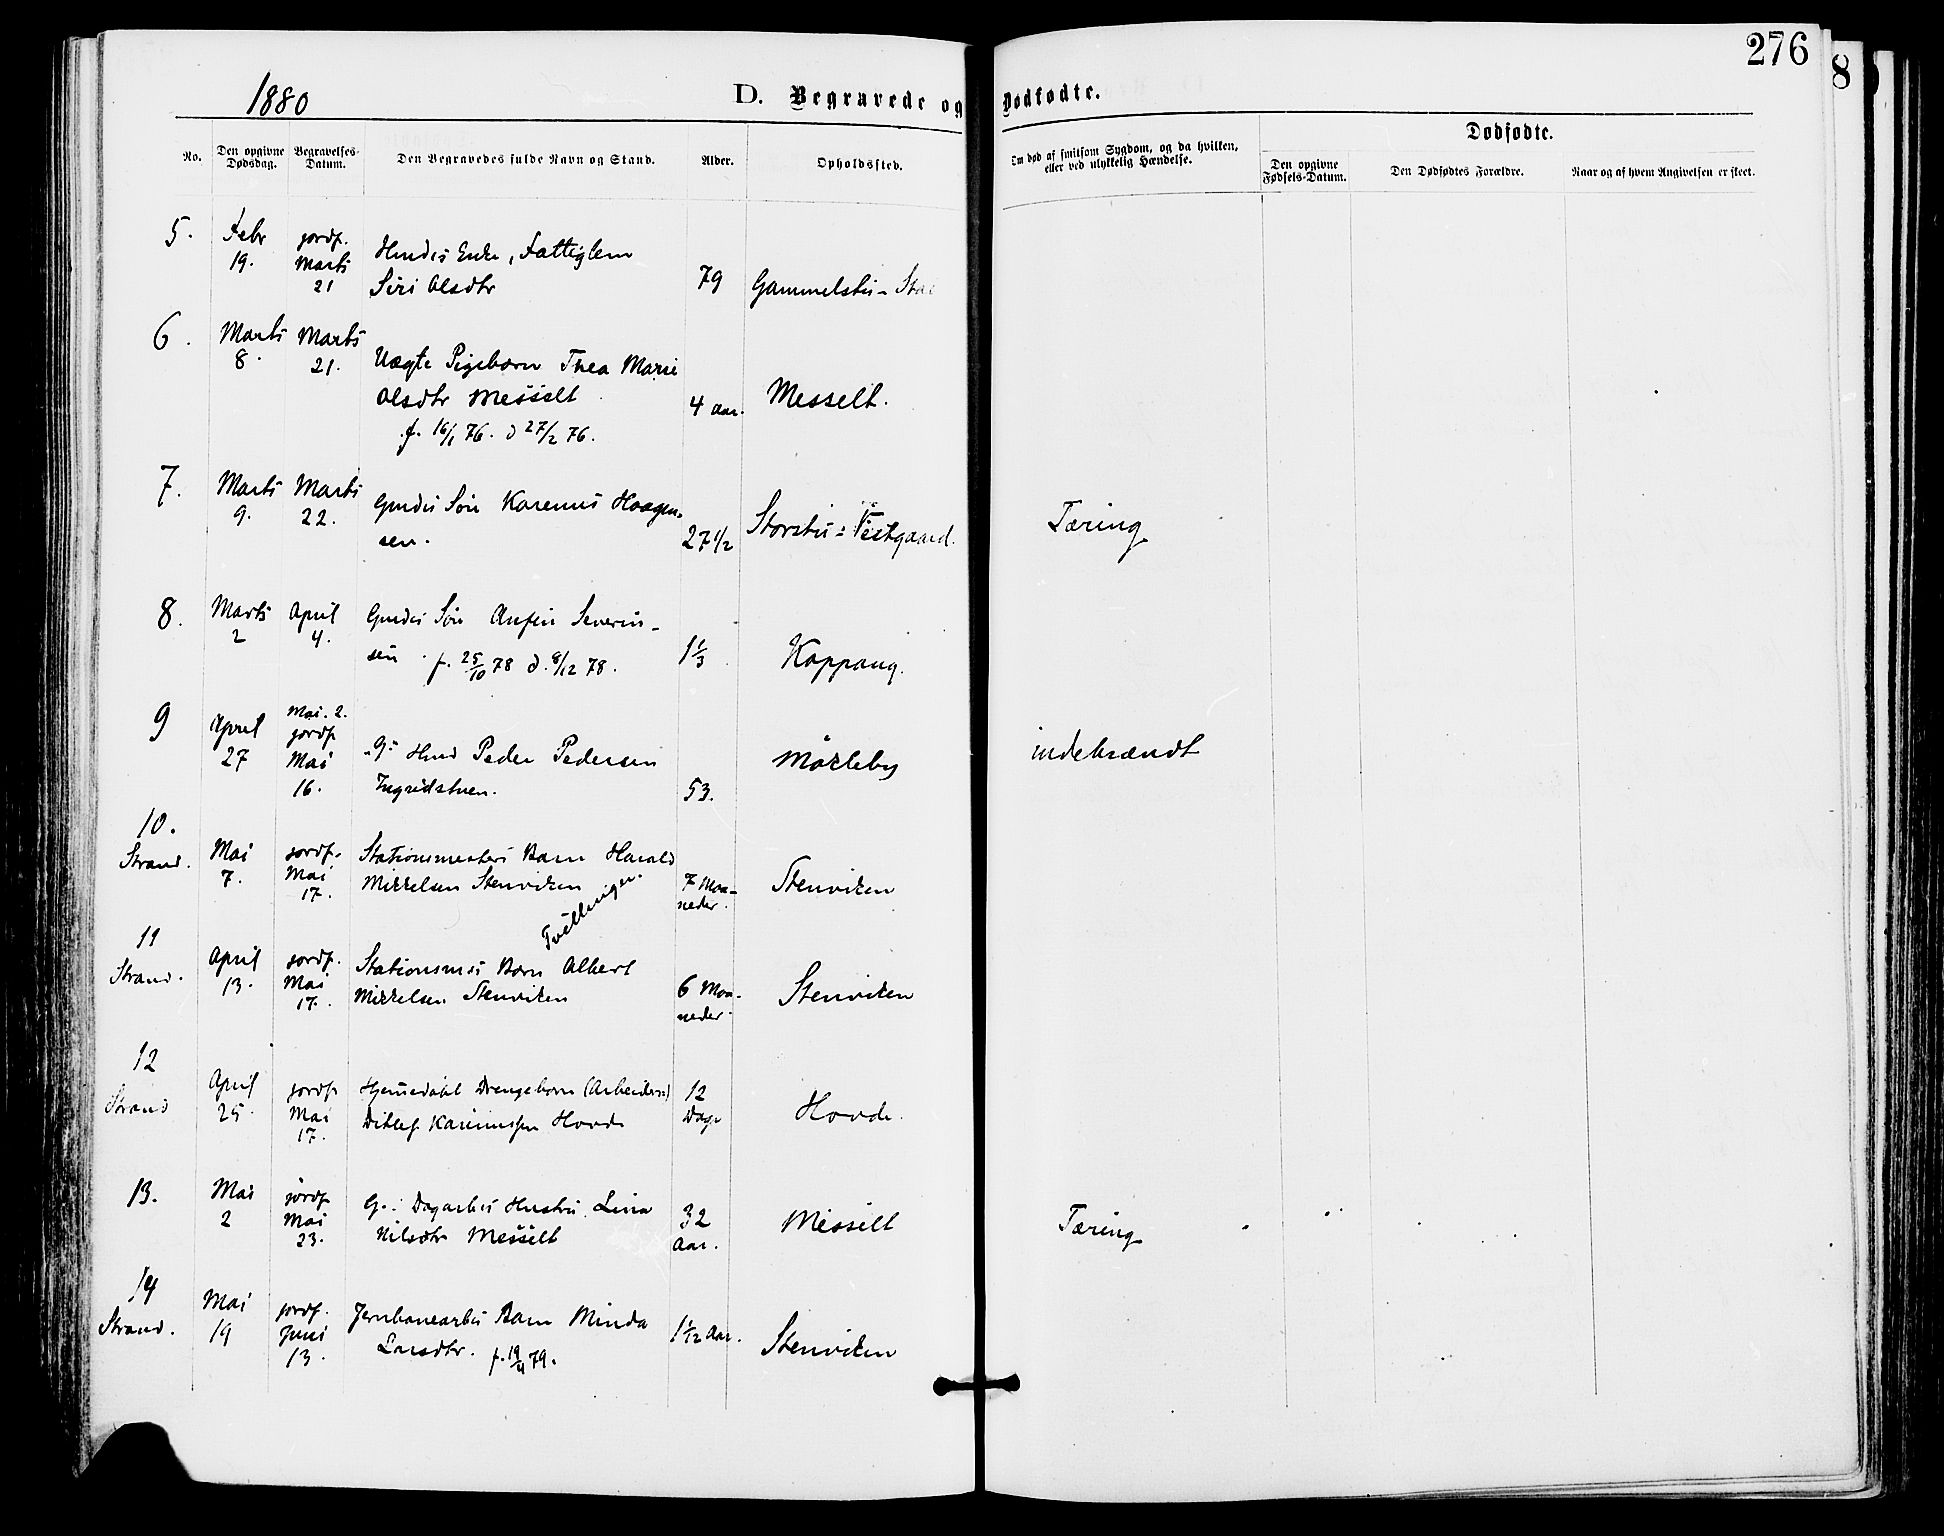 276
8
1880
D. Begravede og Dødfødte.
No.
Den opgivne Dødsdag.
Begravelses-Datum.
Den Begravedes fulde Navn og Stand.
Alder.
Opholdssted.
Om død af smitsom Sygdom, og da hvilken,
eller ved ulykkelig Hændelse.
Dødfødte.
Den opgivne Fødsels-Datum.
Den Dødfødtes Forældre.
Naar og af hvem Angivelsen er skeet.
5. Febr 19. jordf. Marts 21
Enke, Fattiglem
Siri Olsdtr
79 Gammelstu-
6. Marts 8. Marts 21.
Uægte Pigebarn Thea Marie
Olsdtr Messelt
f. 16/1 76. d 27/2 76.
4 aar. Messelt.
7. Marts 9. Marts 22.
Gmds Søn Karenus Haagen-
sen.
27 1/2 Storstu-Vestgaard. Tæring
8. Marts 2 April 4.
Gmds Søn Anfin Severin-
sen. f. 25/10 78 d. 8/12 78.
1 1/3 Koppang.
9 April 27 Mai. 2. jordf Mai 16.
Hmd Peder Pedersen
Ingridstuen.
53. Mørkeby indebrændt
10. Strand. Mai 7. jordf. Mai 17.
Stationsmesters Barn Harald
Mikkelsen Stenviken
7 Maa-
neder. Stenviken
Tvillinger.
11 Strand. April 13. jordf. Mai 17.
Stationsms Barn Albert
Mikkelsen Stenviken
6 Maa-
neder. Stenviken
12 Strand April 25. jordf Mai 17.
Hjemedøbt Drengebarn (Arbeiders)
Ditlef Karinussen Hovde
12
Dage Hovde.
13. Mai 2 jordf Mai 23.
G.: Dagarbs Hustru Lina
Nilsdtr Messelt
32
Aar. Messelt Tæring
14 Strand. Mai 19 jordf. Juni 13.
Jernbanearbs Barn Minda
Larsdtr. f. 19/4 79.
1 1/12 Aar. Stenviken